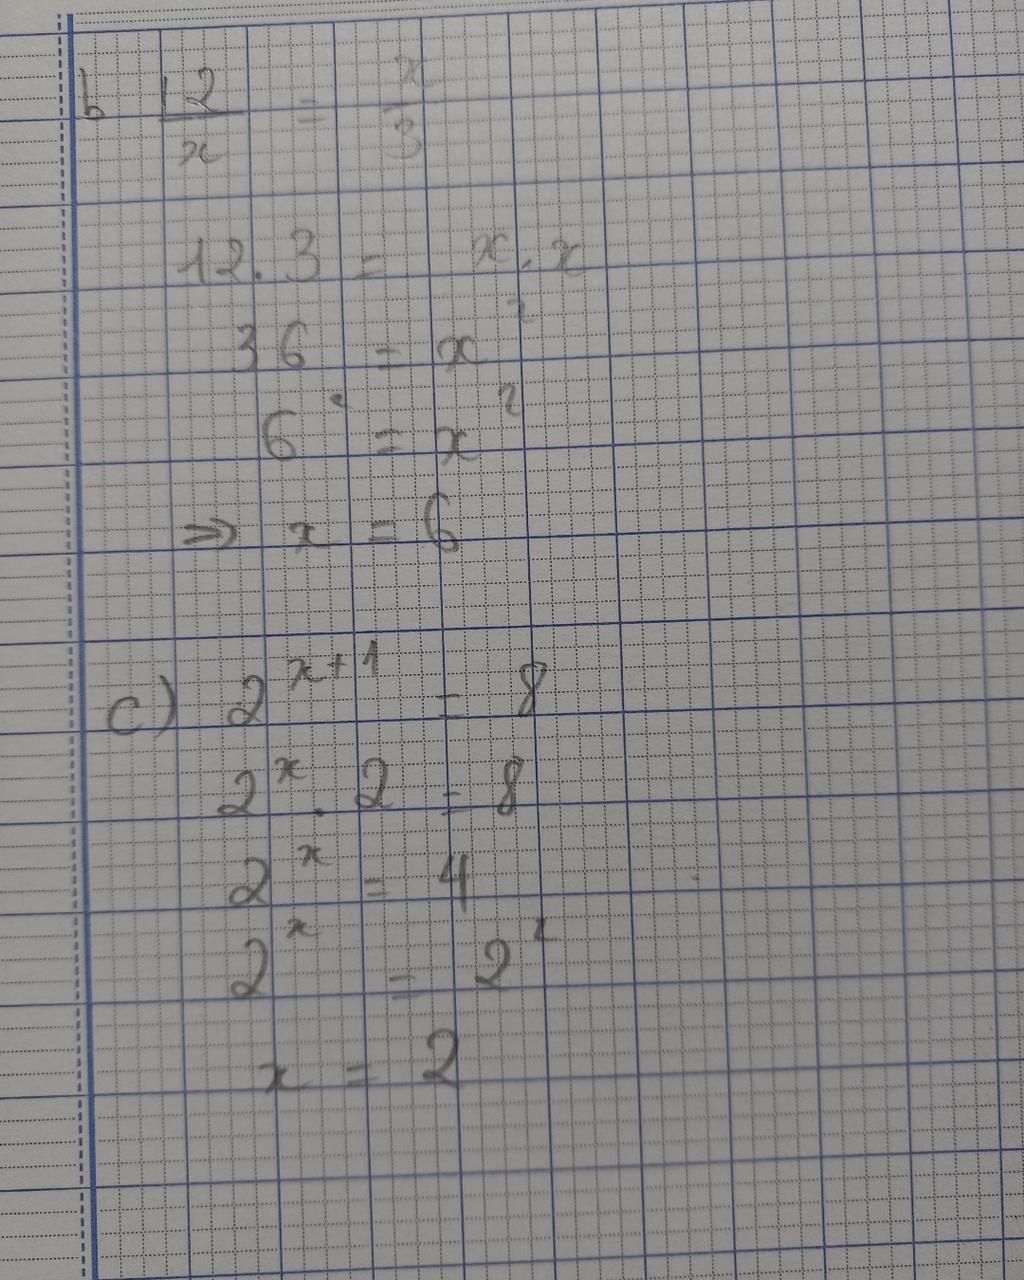 b 12/x = x/3
12.3 = x.x
36 = x²
6² = x²
⇒ x = 6
c) 2^(x+1) = 8
2^x . 2 = 8
2^x = 4
2^x = 2²
x = 2